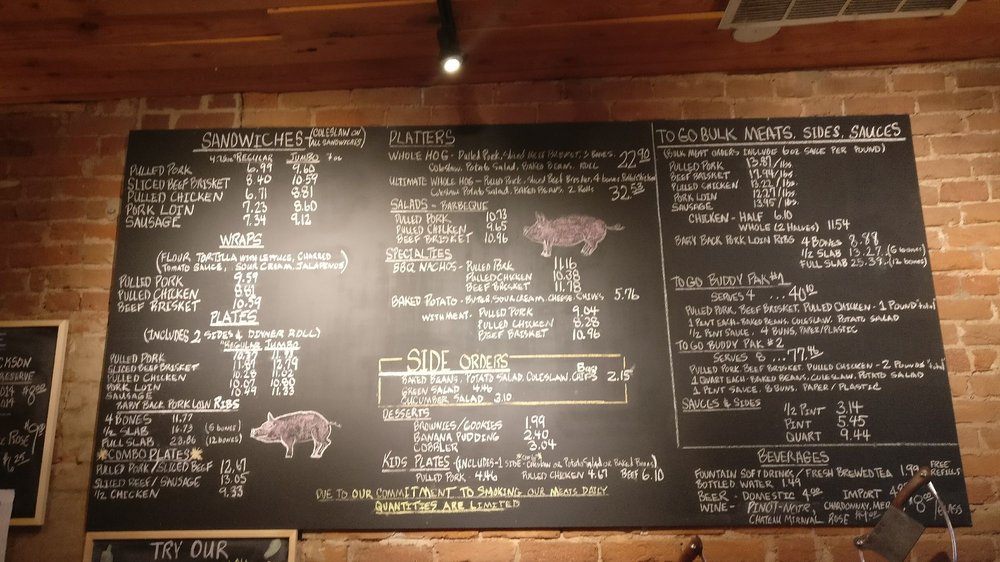 SANDWICHES - (COLESLAW ON ALL SANDWICHES)
REGULAR JUMBO 7oz
PULLED PORK 6.99 9.60
SLICED BEEF BRISKET 8.40 10.59
PULLED CHICKEN 6.71 8.81
PORK LOIN 7.23 8.60
SAUSAGE 7.34 9.12
WRAPS
(FLOUR TORTILLA WITH LETTUCE, CHARRED
TOMATO SAUCE, SOUR CREAM, JALAPENOS)
PULLED PORK 9.59
PULLED CHICKEN 8.81
BEEF BRISKET 10.59
PLATES
(INCLUDES 2 SIDES & DINNER ROLL)
REGULAR JUMBO
PULLED PORK
SLICED BEEF BRISKET
PULLED CHICKEN
PORK LOIN
SAUSAGE 11.33
BABY BACK PORK LOIN RIBS
4 BONES 11.77
1/2 SLAB 16.73 (6 bones)
FULL SLAB 23.86 (12 bones)
*COMBO PLATES*
PULLED PORK / SLICED BEEF 12.61
SLICED BEEF / SAUSAGE 13.05
1/2 CHICKEN 9.33
PLATTERS
WHOLE HOG - Pulled Pork, Sliced Beef Brisket, 3 Bones, 22.90
Coleslaw, Potato Salad, Baked Beans, Roll
ULTIMATE WHOLE HOG - Pulled Pork, Sliced Beef Brisket, 4 bones, Pulled Chicken
Coleslaw, Potato Salad, Baked Beans, 2 Rolls 32.53
SALADS - BARBECUE
PULLED PORK 10.73
PULLED CHICKEN 9.65
BEEF BRISKET 10.96
SPECIALTIES
BBQ NACHOS - PULLED PORK 11.16
PULLED CHICKEN 10.38
BEEF BRISKET 11.78
BAKED POTATO - BUTTER, SOUR CREAM, CHEESE, CHIVES 5.76
WITH MEAT - PULLED PORK 9.04
PULLED CHICKEN 8.28
BEEF BRISKET 10.96
SIDE ORDERS
BAKED BEANS, POTATO SALAD, COLESLAW, CHIPS 2.15
GREEN SALAD 4.46
CUCUMBER SALAD 3.10
DESSERTS
BROWNIES/COOKIES 1.99
BANANA PUDDING 2.40
COBBLER 3.04
KIDS PLATES (INCLUDES 1 SIDE - COLESLAW OR POTATO SALAD OR BAKED BEANS)
PULLED PORK 4.46 PULLED CHICKEN 4.67 BEEF 6.10
DUE TO OUR COMMITMENT TO SMOKING OUR MEATS DAILY
QUANTITIES ARE LIMITED
TO GO BULK MEATS, SIDES, SAUCES
(BULK MEAT ORDERS INCLUDE 6oz SAUCE PER POUND)
PULLED PORK 13.87/lbs.
BEEF BRISKET 17.94/lbs.
PULLED CHICKEN 13.22/lbs.
PORK LOIN 12.27/lbs
SAUSAGE 13.95/lbs.
CHICKEN - HALF 6.10
WHOLE (2 HALVES) 11.54
BABY BACK PORK LOIN RIBS 4 BONES 8.88
1/2 SLAB 13.27 (6 bones)
FULL SLAB 25.39 (12 bones)
TO GO BUDDY PAK #1
SERVES 4 ... 40.10
PULLED PORK, BEEF BRISKET, PULLED CHICKEN - 1 POUND total
1 PINT EACH - BAKED BEANS, COLESLAW, POTATO SALAD
1/2 PINT SAUCE, 4 BUNS, PAPER/PLASTIC
TO GO BUDDY PAK #2
SERVES 8 ... 77.46
PULLED PORK, BEEF BRISKET, PULLED CHICKEN - 2 POUNDS total
1 QUART EACH - BAKED BEANS, COLESLAW, POTATO SALAD
1 PINT SAUCE, 8 BUNS, PAPER / PLASTIC
SAUCES & SIDES
1/2 PINT 3.14
PINT 5.45
QUART 9.44
BEVERAGES
FOUNTAIN SOFT DRINKS / FRESH BREWED TEA 1.99 FREE REFILLS
BOTTLED WATER 1.49
BEER - DOMESTIC 4.00 IMPORT
WINE - PINOT-NOIR, CHARDONNAY, $8.00/GLASS
CHATEAU MIRAVAL ROSÉ
TRY OUR